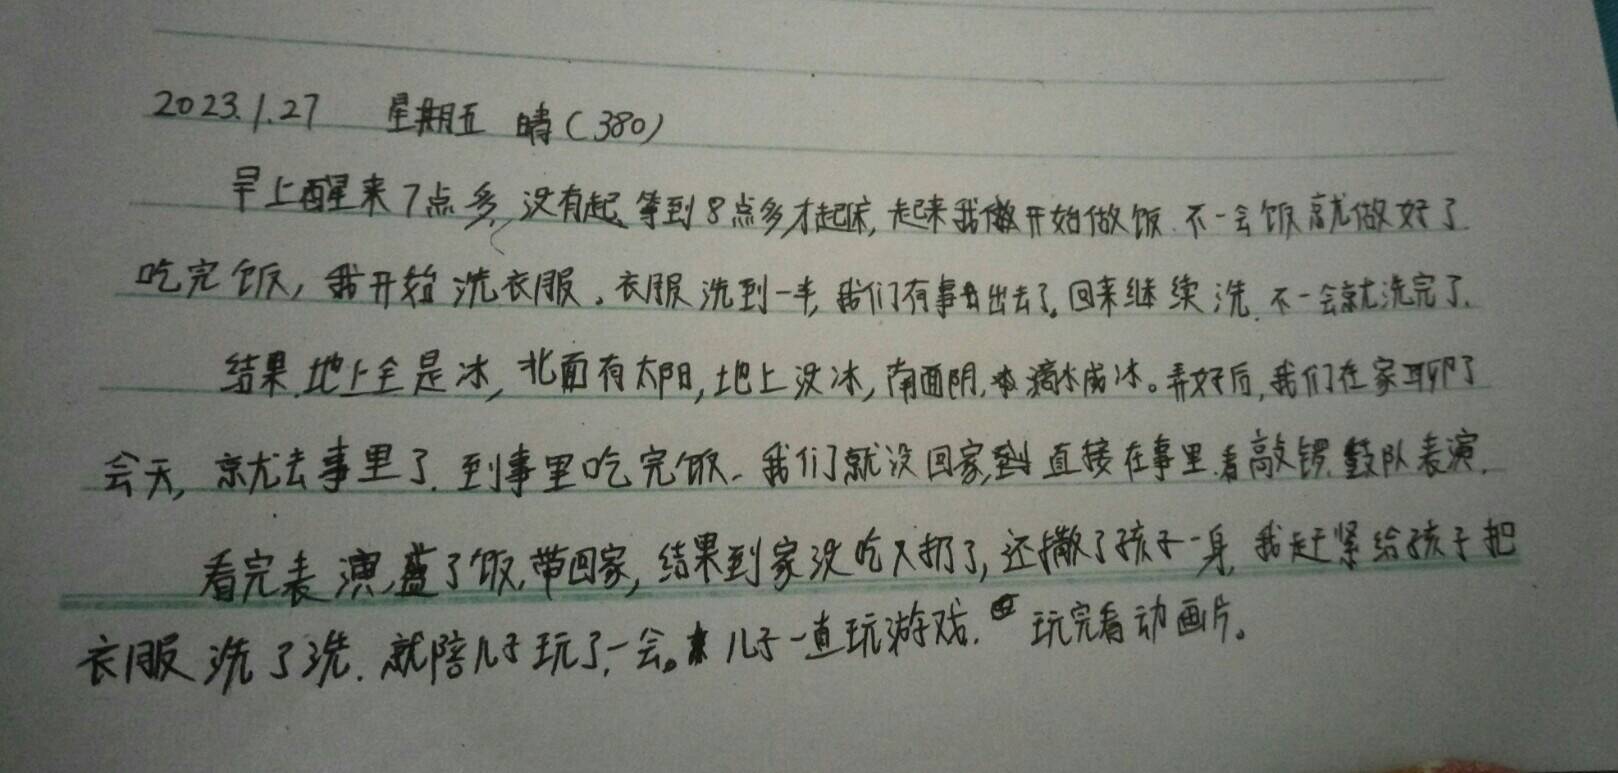 2023.1.27 星期五 晴(380)
早上醒来7点多,没有起,等到8点多才起床,起来我开始做饭.不一会饭就做好了.
吃完饭,我开始洗衣服。衣服洗到一半,我们有事出去了。回来继续洗.不一会就洗完了.
结果.地上全是冰,北面有太阳,地上没冰,南面阴,滴水成冰。弄好后,我们在家聊了
会天,就去事里了.到事里吃完饭.我们就没回家,直接在事里.看敲锣.鼓队表演.
看完表演,盛了饭,带回家,结果到家没吃又扔了,还撒了孩子一身,我赶紧给孩子把
衣服洗了洗.就陪儿子玩了一会。儿子一直玩游戏.玩完看动画片。